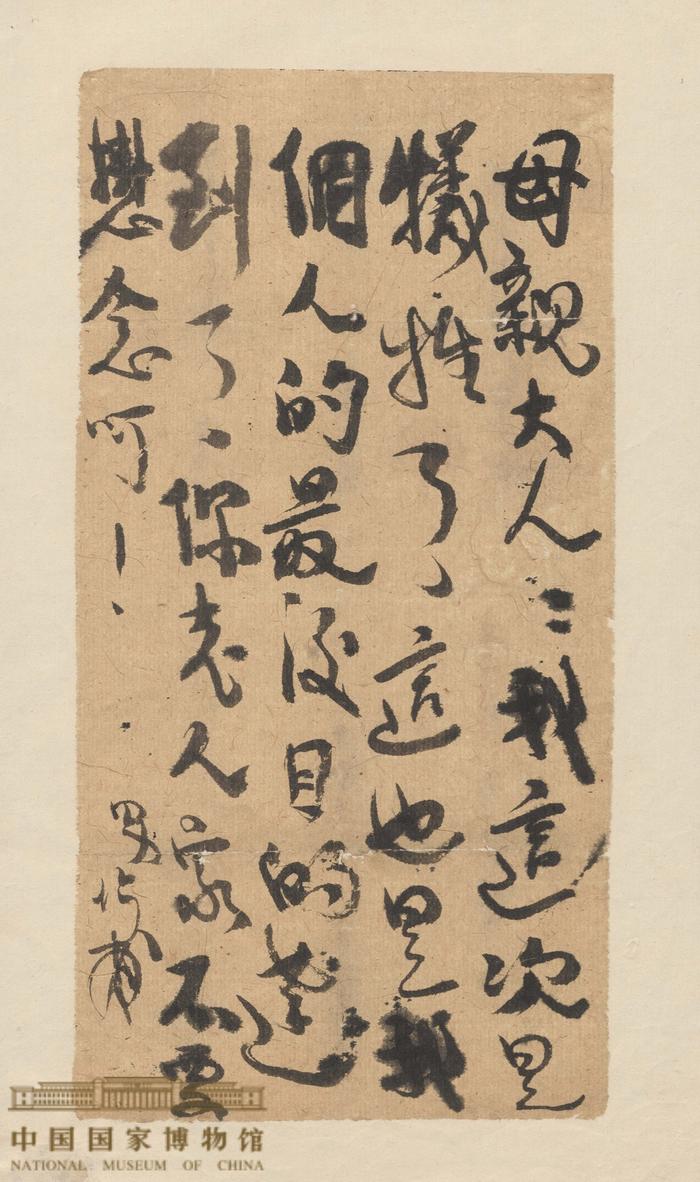 母親大人：我這次是
犧牲了、這也是我
個人的最後目的達
到了、你老人家不要
念呵！
甫
中国国家博物馆
NATIONAL MUSEUM OF CHINA